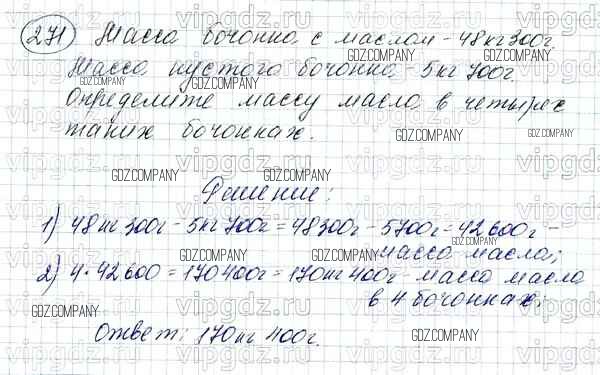 271 Масса бочонка с маслом - 48кг300г.
Масса пустого бочонка - 5кг 700г.
Определите массу масла в четырёх
таких бочонках.
Решение:
1) 48кг 300г - 5кг 700г = 48300г - 5700г = 42600г -
масса масла;
2) 4 · 42600 = 170400г = 170кг 400г - масса масла
в 4 бочонках;
Ответ: 170кг 400г.
vipgdz.ru
GDZ.COMPANY